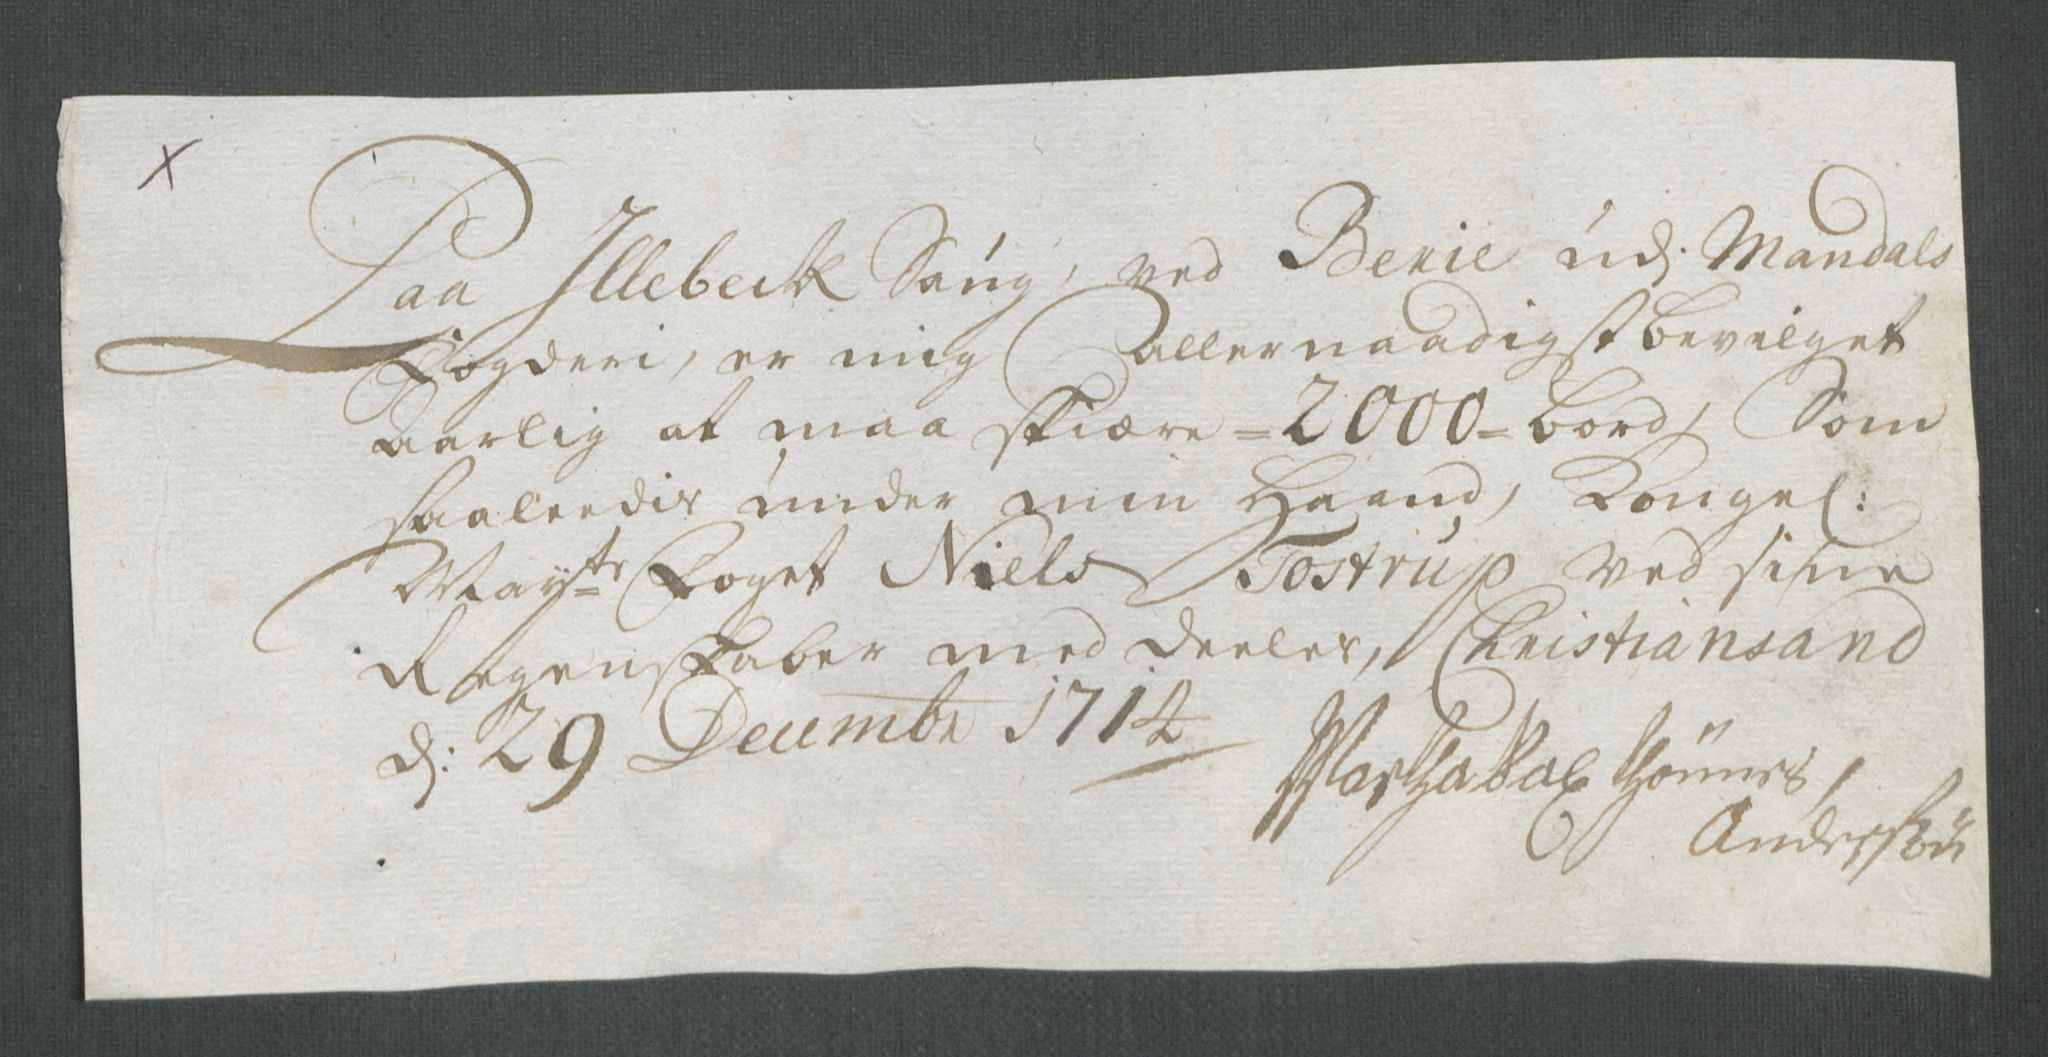 x
Paa Illebeck Saug, ved Berie ud: Mandals
Fogderi, er mig allernaadigst bevilget
aarlig at maa skiære = 2000 = bord, Som
saaleedis under min Haand, Kongel:
Mayts Foget Niels Tostrup ved sine
Regenskaber med deeles, Christiansand
d: 29 Decembr 1714
Andersøn